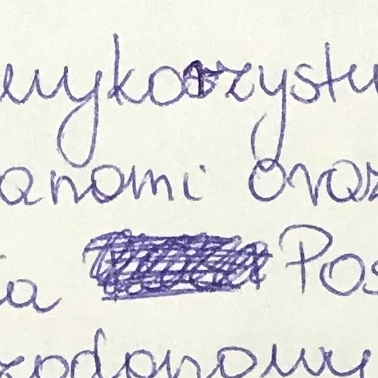 wykorzystu
anami oraz
ia Pos
zodonowy